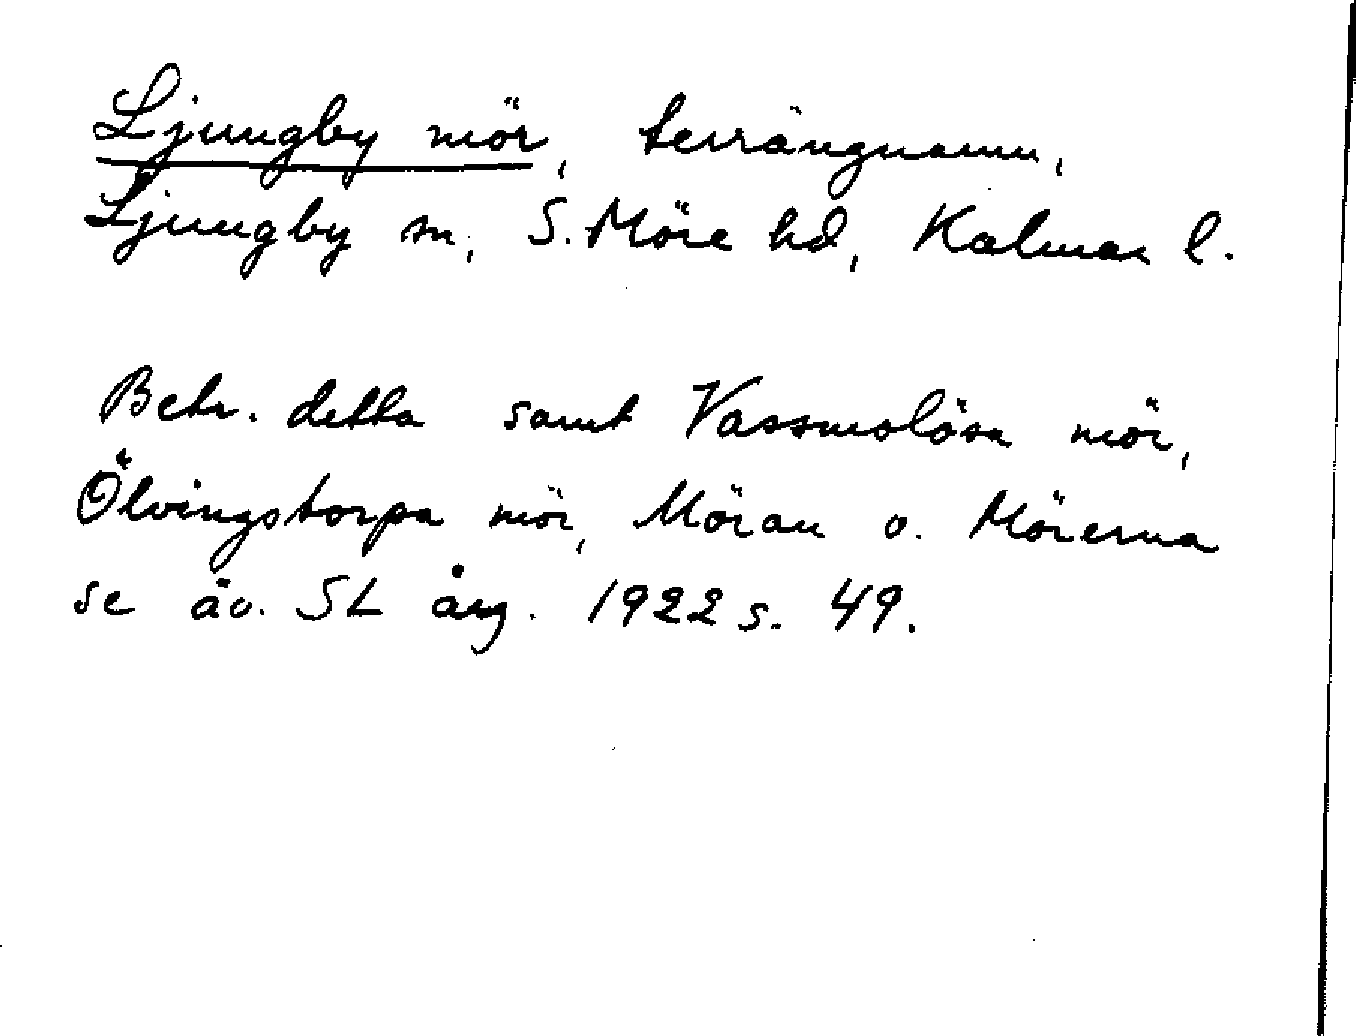 Ljungby mör, terrängnamn,
Ljungby sn, S. Möre hd, Kalmar l.
Betr. detta samt Vassmolösa mör,
Ölvingstorpa mör, Möran o. Mörerna
se äv. SL årg. 1922 s. 49.